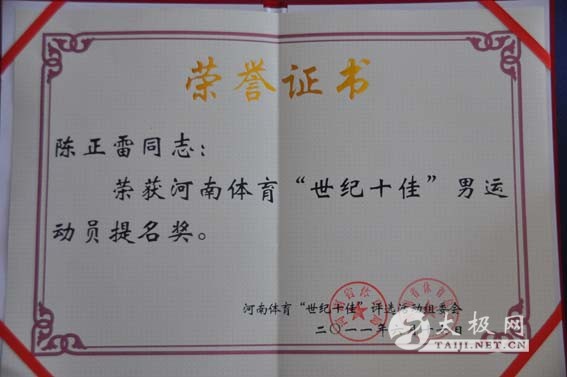 荣誉证书
陈正雷同志：
荣获河南体育“世纪十佳”男运
动员提名奖。
河南体育“世纪十佳”评选活动组委会
二〇一一年
太极网
TAIJI.NET.CN